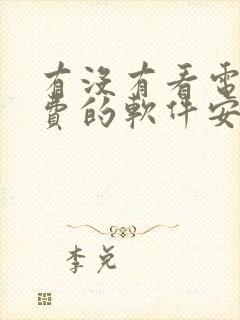 有没有看電
費的軟件安
李兑